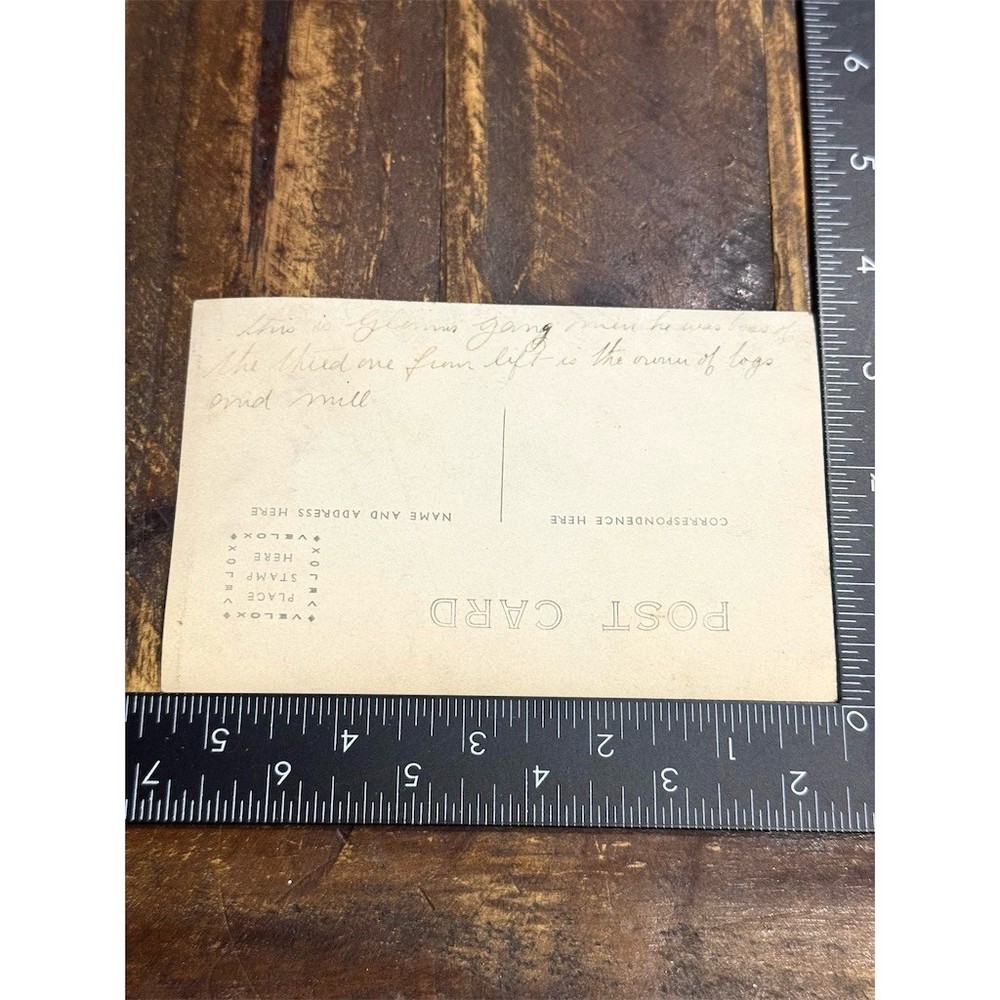 this is Glenn's gang men he was boss of
the third one from lift is the owner of logs
and mill
NAME AND ADDRESS HERE
CORRESPONDENCE HERE
POST CARD
VELOX
VELOX
PLACE
STAMP
HERE
VELOX
VELOX
6
5
4
3
2
0
1
2
3
4
5
2
3
4
5
6
7